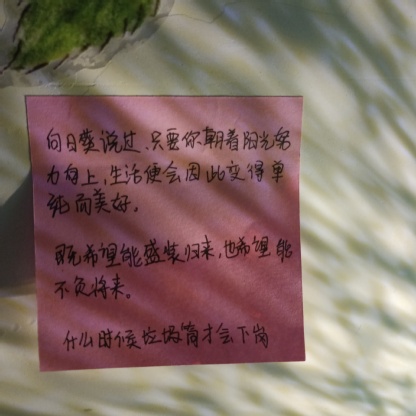 向日葵说过,只要你朝着阳光努
力向上,生活便会因此变得单
纯而美好。
既希望能盛装归来,也希望能
不负将来。
什么时候垃圾筒才会下岗